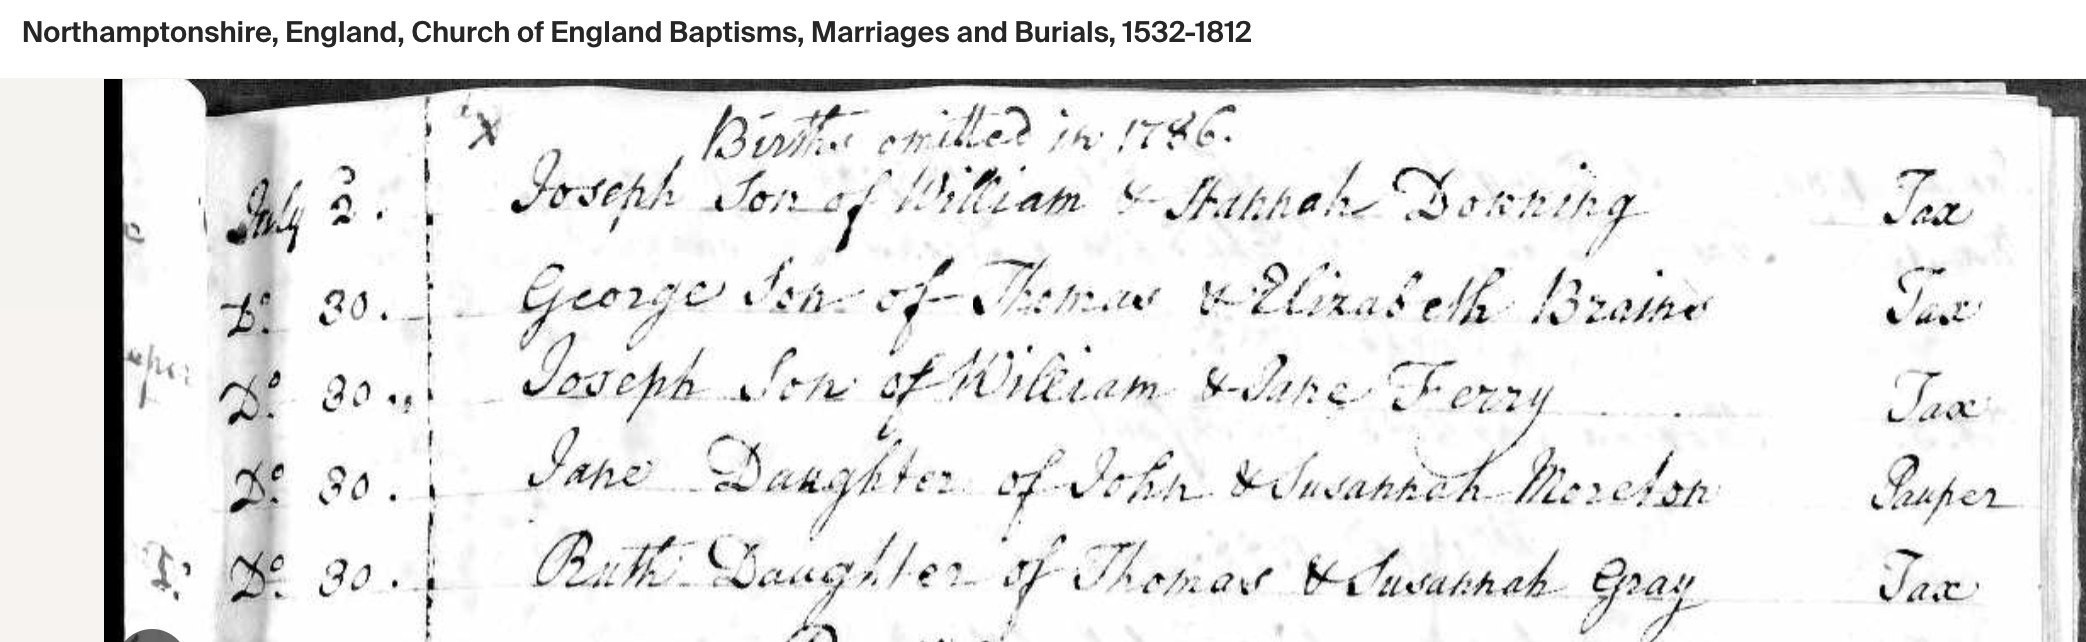 Northamptonshire, England, Church of England Baptisms, Marriages and Burials, 1532-1812
X Births omitted in 1786.
July 2. Joseph Son of William & Hannah Downing Tax
Do. 30. George Son of Thomas & Elizabeth Brains Tax
Do. 30 Joseph Son of William & Jane Ferry Tax
Do. 30. Jane Daughter of John & Susannah Moreton Pauper
Do. 30. Ruth Daughter of Thomas & Susannah Gray Tax